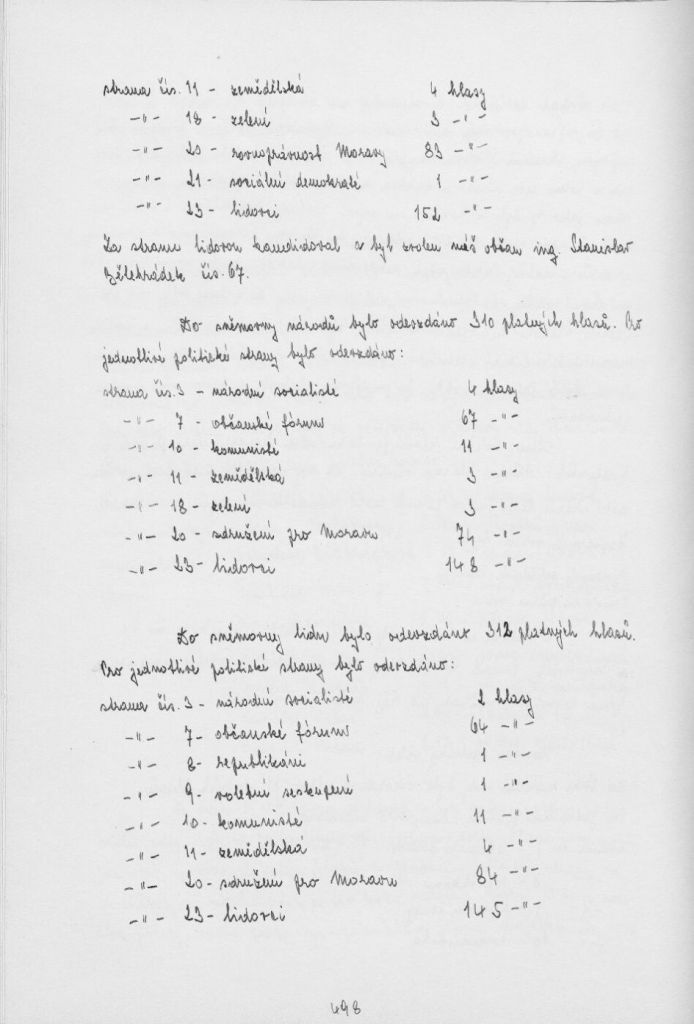 strana čís. 11 - zemědělská 4 hlasy
-"- 18 - zelení 3 -"-
-"- 20 - rovnoprávnost Moravy 83 -"-
-"- 21 - sociální demokraté 1 -"-
-"- 23 - lidovci 152 -"-
Za stranu lidovou kandidoval a byl zvolen náš občan ing. Stanislav
Bělehrádek čís. 67.
Do sněmovny národů bylo odevzdáno 310 platných hlasů. Pro
jednotlivé politické strany bylo odevzdáno:
strana čís. 3 - národní socialisté 4 hlasy
-"- 7 - občanské fórum 67 -"-
-"- 10 - komunisté 11 -"-
-"- 11 - zemědělská 3 -"-
-"- 18 - zelení 3 -"-
-"- 20 - sdružení pro Moravu 74 -"-
-"- 23 - lidovci 148 -"-
Do sněmovny lidu bylo odevzdáno 312 platných hlasů.
Pro jednotlivé politické strany bylo odevzdáno:
strana čís. 3 - národní socialisté 2 hlasy
-"- 7 - občanské fórum 64 -"-
-"- 8 - republikáni 1 -"-
-"- 9 - volební seskupení 1 -"-
-"- 10 - komunisté 11 -"-
-"- 11 - zemědělská 4 -"-
-"- 20 - sdružení pro Moravu 84 -"-
-"- 23 - lidovci 145 -"-
498